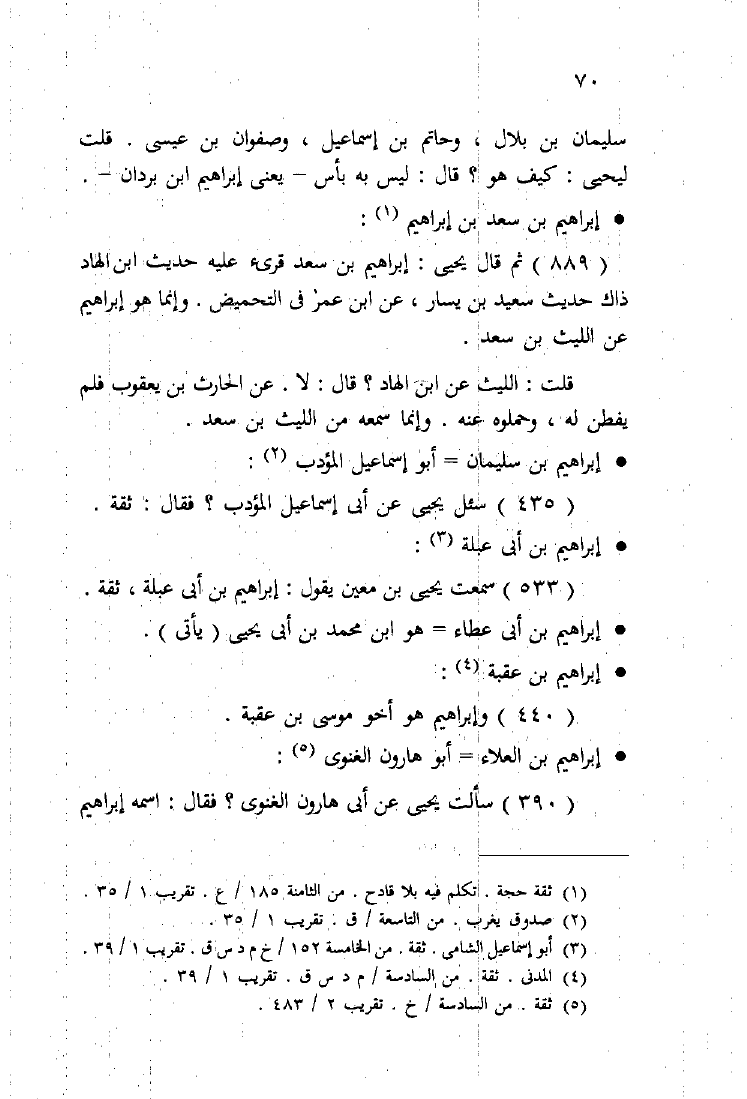 ٧٠
سليمان بن بلال ، وحاتم بن إسماعيل ، وصفوان بن عيسى . قلت
ليحيى : كيف هو ؟ قال : ليس به بأس – يعنى إبراهيم ابن بردان – .
● إبراهيم بن سعد بن إبراهيم (١) :
( ٨٨٩ ) ثم قال يحيى : إبراهيم بن سعد قرىء عليه حديث ابن الهاد
ذاك حديث سعيد بن يسار ، عن ابن عمر فى التحميض . وإنما هو إبراهيم
عن الليث بن سعد .
قلت : الليث عن ابن الهاد ؟ قال : لا . عن الحارث بن يعقوب فلم
يفطن له ، وحملوه عنه . وإنما سمعه من الليث بن سعد .
● إبراهيم بن سليمان = أبو إسماعيل المؤدب (٢) :
( ٤٣٥ ) سئل يحيى عن أبى إسماعيل المؤدب ؟ فقال : ثقة .
● إبراهيم بن أبى عبلة (٣) :
( ٥٣٣ ) سمعت يحيى بن معين يقول : إبراهيم بن أبى عبلة ، ثقة .
● إبراهيم بن أبى عطاء = هو ابن محمد بن أبى يحيى ( يأتى ) .
● إبراهيم بن عقبة (٤) :
( ٤٤٠ ) وإبراهيم هو أخو موسى بن عقبة .
● إبراهيم بن العلاء = أبو هارون الغنوى (٥) :
( ٣٩٠ ) سألت يحيى عن أبى هارون الغنوى ؟ فقال : اسمه إبراهيم
(١) ثقة حجة . تكلم فيه بلا قادح . من الثامنة ١٨٥ / ع . تقريب ١ / ٣٥ .
(٢) صدوق يغرب . من التاسعة / ق . تقريب ١ / ٣٥ .
(٣) أبو إسماعيل الشامى . ثقة . من الخامسة ١٥٢ / خ م د س ق . تقريب ١ / ٣٩ .
(٤) المدنى . ثقة . من السادسة / م د س ق . تقريب ١ / ٣٩ .
(٥) ثقة . من السادسة / خ . تقريب ٢ / ٤٨٣ .